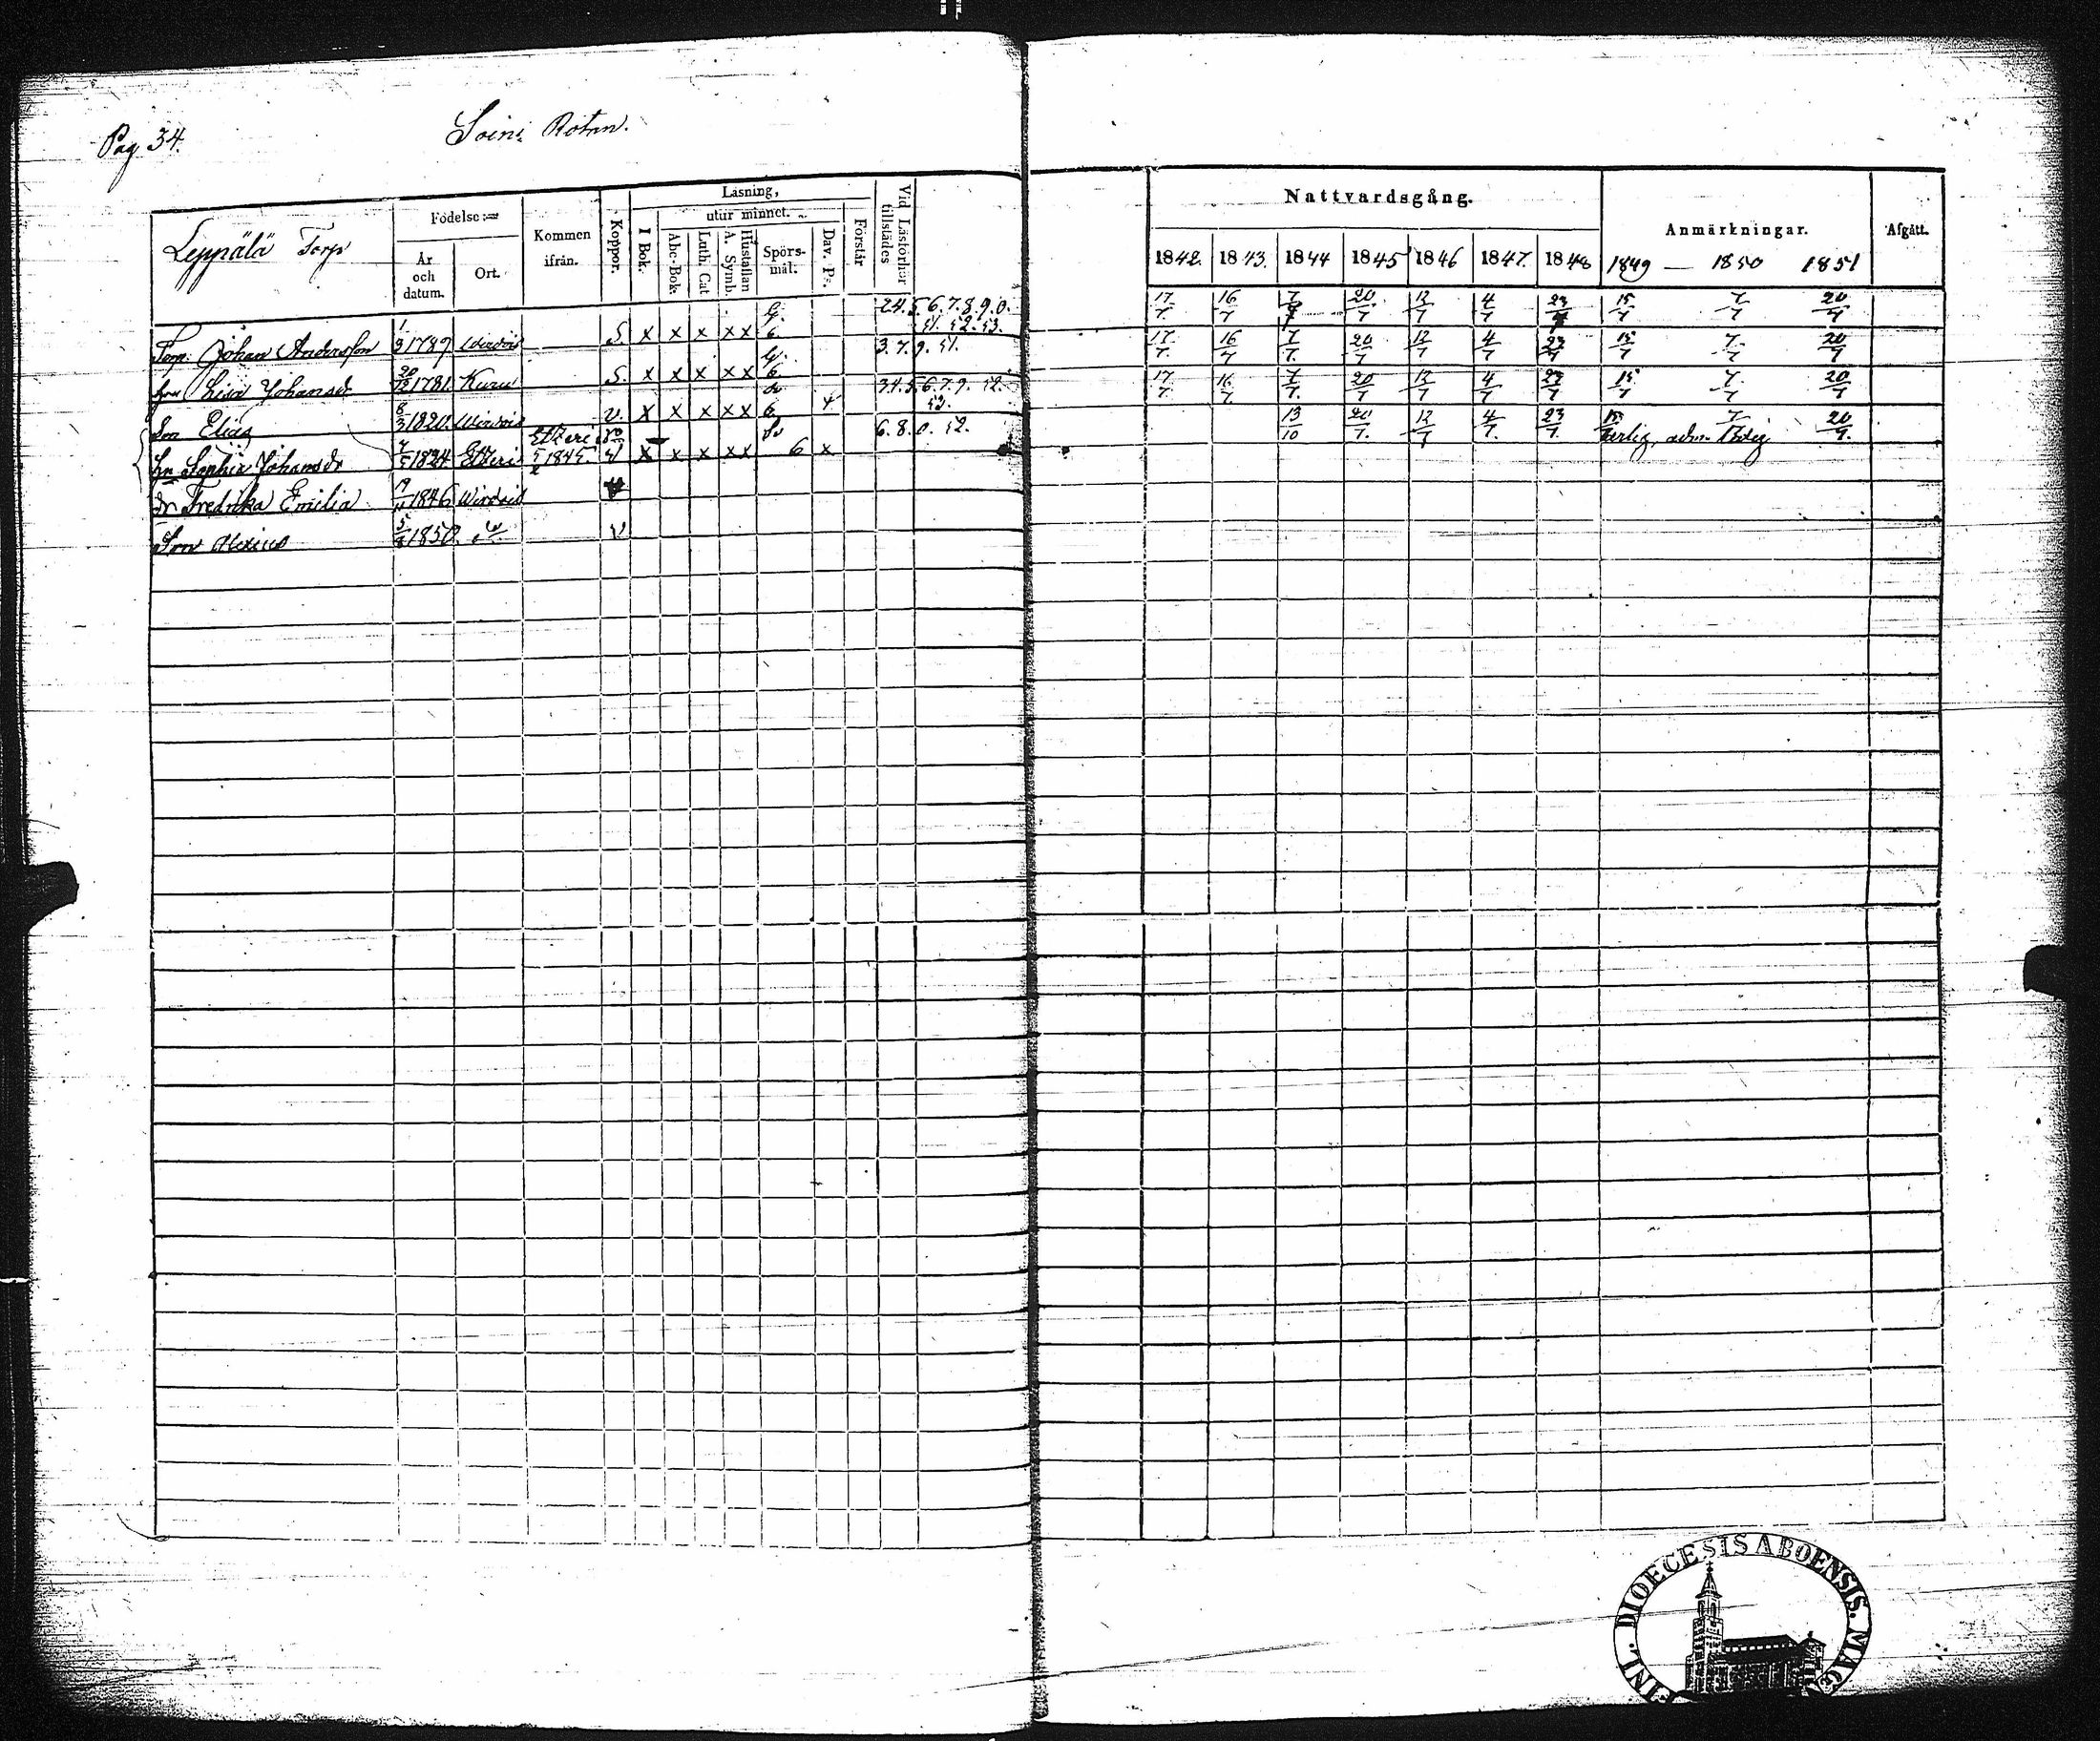 Pag 34.
Soini Rotan.
Leppälä Torp
Födelse
År och datum.
Ort.
Kommen ifrån.
Koppor.
Läsning,
I Bok.
utur minnet.
Abc-Bok.
Luth. Cat
Hustaflan A. Symb.
Spörs-mål.
Dav. Ps.
Förstår
Vid Läsförhör tillstädes
Nattvardsgång.
1842. 1843. 1844 1845 1846 1847. 1848
Anmärkningar.
1849 — 1850 1851
Afgått.
Torp. Johan Andersson 1/3 1789 S x x x x x 6 24.5.6.7.8.9.0. 51. 52. 53. 17/7 16/7 7/7 20/7 12/7 4/7 23/7 15/7 7/7 20/7
Lisa Johansdr 20/12 1781 Kuru S. x x x x x 6 3.7.9.51. 17/7. 16/7 7/7. 20/7 12/7 4/7 23/7 15/7 7/7 20/7
Son Elias 8/3 1820 Wirdois v. x x x x x 6 34.5.6.7.9.52. 53. 17/7. 16/7. 7/7. 20/7 12/7 4/7 23/7 15/7 7/7 20/7
Hu Sophia Johansdr 1824 Etzeri Etzeri 1845. v x x x x x 6 x 6.8.0.52. 13/10 20/7. 12/7 4/7. 23/7. 20/7.
dr Fredrika Emilia 19/11 1846 Wirdois
Son Alexius 5/8 1850. v
FINL. DIOECESIS ABOENSIS. MAG